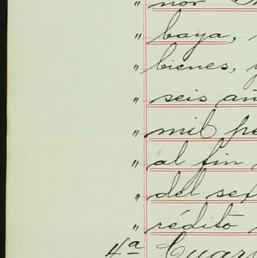 " nor
" baya,
" bienes, y
" seis añ
" mil pe
" al fin
" del sex
" rédito
4ª Cuar